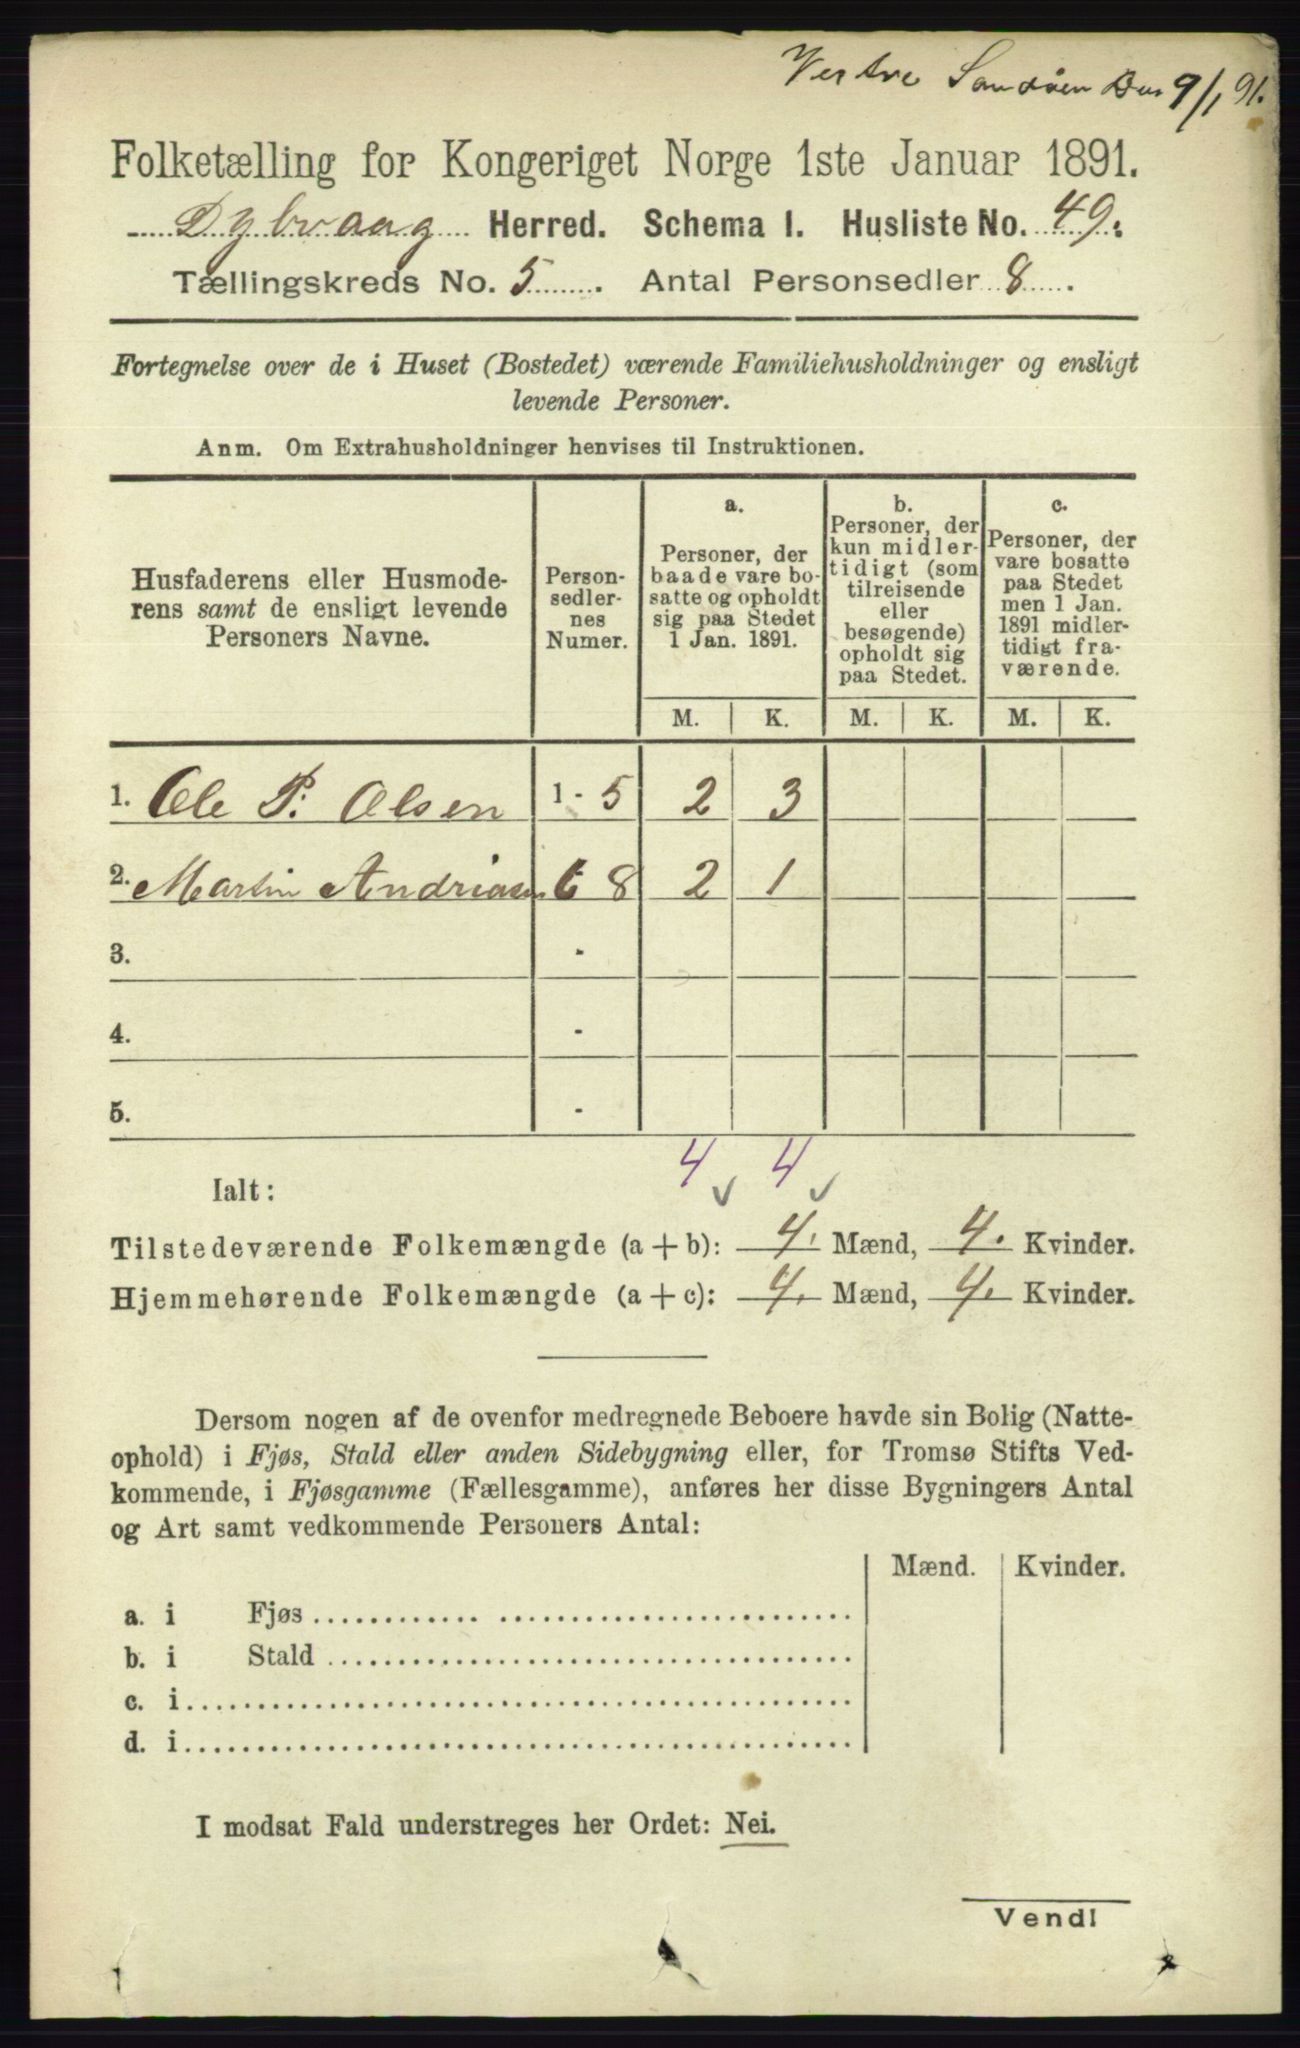 Vestre Sandøen 9/1 91.
Folketælling for Kongeriget Norge 1ste Januar 1891.
Dybvaag Herred. Schema I. Husliste No. 49.
Tællingskreds No. 5. Antal Personsedler 8.
Fortegnelse over de i Huset (Bostedet) værende Familiehusholdninger og ensligt
levende Personer.
Anm. Om Extrahusholdninger henvises til Instruktionen.
Husfaderens eller Husmode-
rens samt de ensligt levende
Personers Navne.
Person-
sedler-
nes
Numer.
a.
Personer, der
baade vare bo-
satte og opholdt
sig paa Stedet
1 Jan. 1891.
b.
Personer, der
kun midler-
tidigt (som
tilreisende
eller
besøgende)
opholdt sig
paa Stedet.
c.
Personer, der
vare bosatte
paa Stedet
men 1 Jan.
1891 midler-
tidigt fra-
værende.
M. K. M. K. M. K.
1. Ole P. Olsen 1 - 5 2 3
2. Martin Andriasen 6 8 2 1
3. -
4. -
5. -
4 4
Ialt:
Tilstedeværende Folkemængde (a + b): 4. Mænd, 4. Kvinder.
Hjemmehørende Folkemængde (a + c): 4. Mænd, 4. Kvinder.
Dersom nogen af de ovenfor medregnede Beboere havde sin Bolig (Natte-
ophold) i Fjøs, Stald eller anden Sidebygning eller, for Tromsø Stifts Ved-
kommende, i Fjøsgamme (Fællesgamme), anføres her disse Bygningers Antal
og Art samt vedkommende Personers Antal:
Mænd. Kvinder.
a. i Fjøs
b. i Stald
c. i
d. i
I modsat Fald understreges her Ordet: Nei.
Vend!